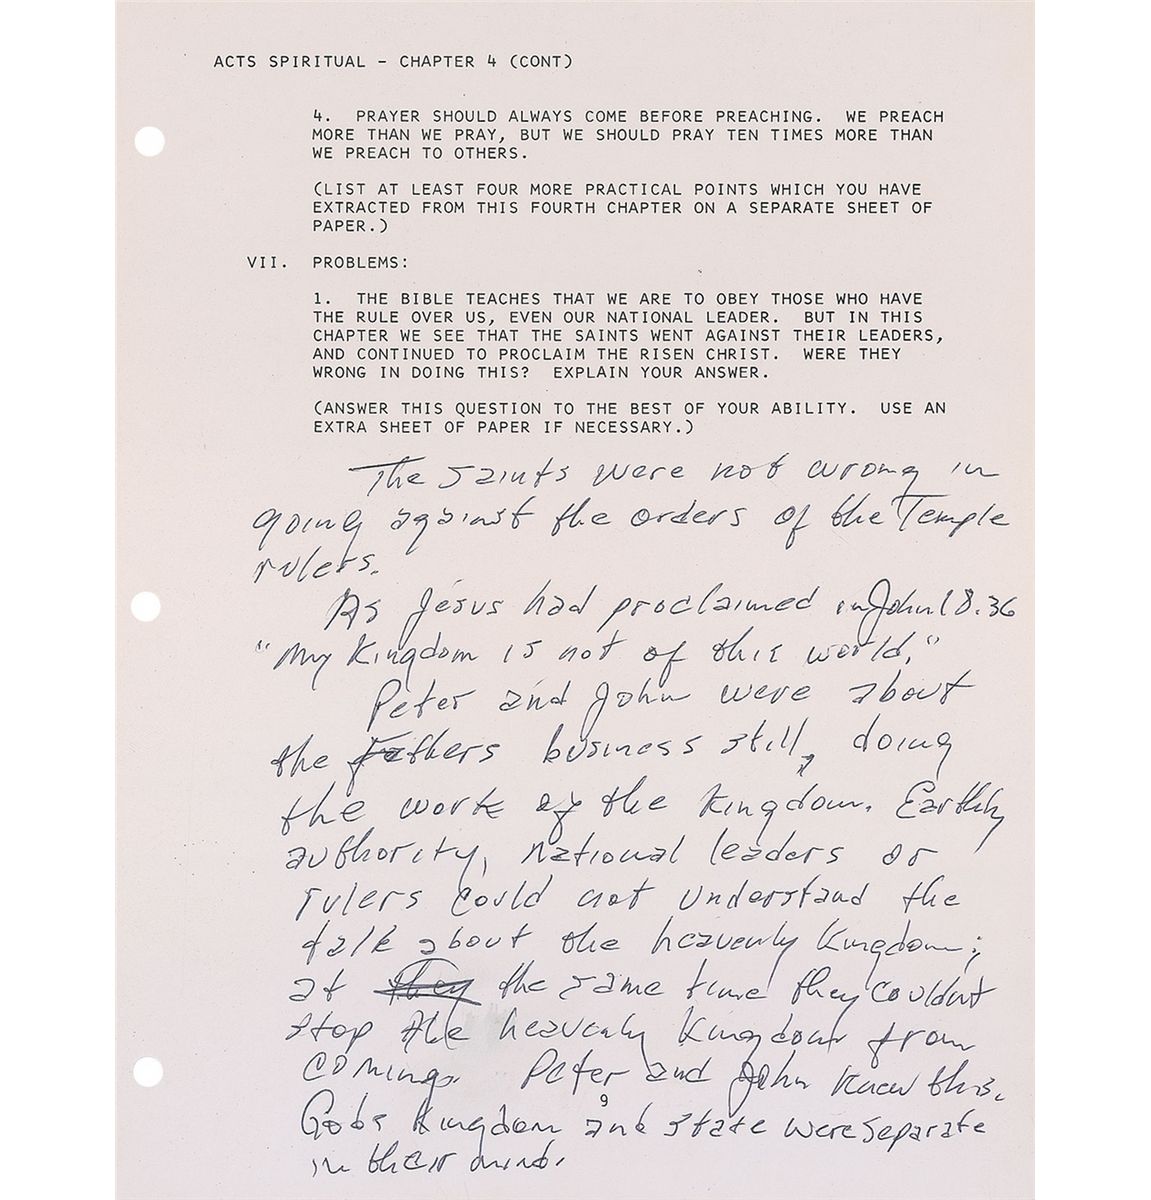 ACTS SPIRITUAL - CHAPTER 4 (CONT)
4. PRAYER SHOULD ALWAYS COME BEFORE PREACHING. WE PREACH
MORE THAN WE PRAY, BUT WE SHOULD PRAY TEN TIMES MORE THAN
WE PREACH TO OTHERS.
(LIST AT LEAST FOUR MORE PRACTICAL POINTS WHICH YOU HAVE
EXTRACTED FROM THIS FOURTH CHAPTER ON A SEPARATE SHEET OF
PAPER.)
VII. PROBLEMS:
1. THE BIBLE TEACHES THAT WE ARE TO OBEY THOSE WHO HAVE
THE RULE OVER US, EVEN OUR NATIONAL LEADER. BUT IN THIS
CHAPTER WE SEE THAT THE SAINTS WENT AGAINST THEIR LEADERS,
AND CONTINUED TO PROCLAIM THE RISEN CHRIST. WERE THEY
WRONG IN DOING THIS? EXPLAIN YOUR ANSWER.
(ANSWER THIS QUESTION TO THE BEST OF YOUR ABILITY. USE AN
EXTRA SHEET OF PAPER IF NECESSARY.)
The saints were not wrong in
going against the orders of the Temple
rulers.
As Jesus had proclaimed in John 18.36
"My Kingdom is not of this world."
Peter and John were about
the Fathers business still, doing
the work of the Kingdom. Earthly
authority, national leaders or
rulers could not understand the
talk about the heavenly Kingdom;
at they the same time they couldnt
stop the heavenly Kingdom from
coming. Peter and John knew this.
9
Gods Kingdom and state were separate
in their minds.